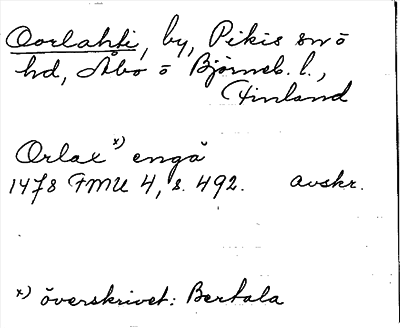 Oorlahti, by, Pikis sn o
hd, Åbo o Björneb. l.,
Finland
Orlax x) engå
1478 FMU 4, s. 492. avskr.
x) överskrivet: Bertala